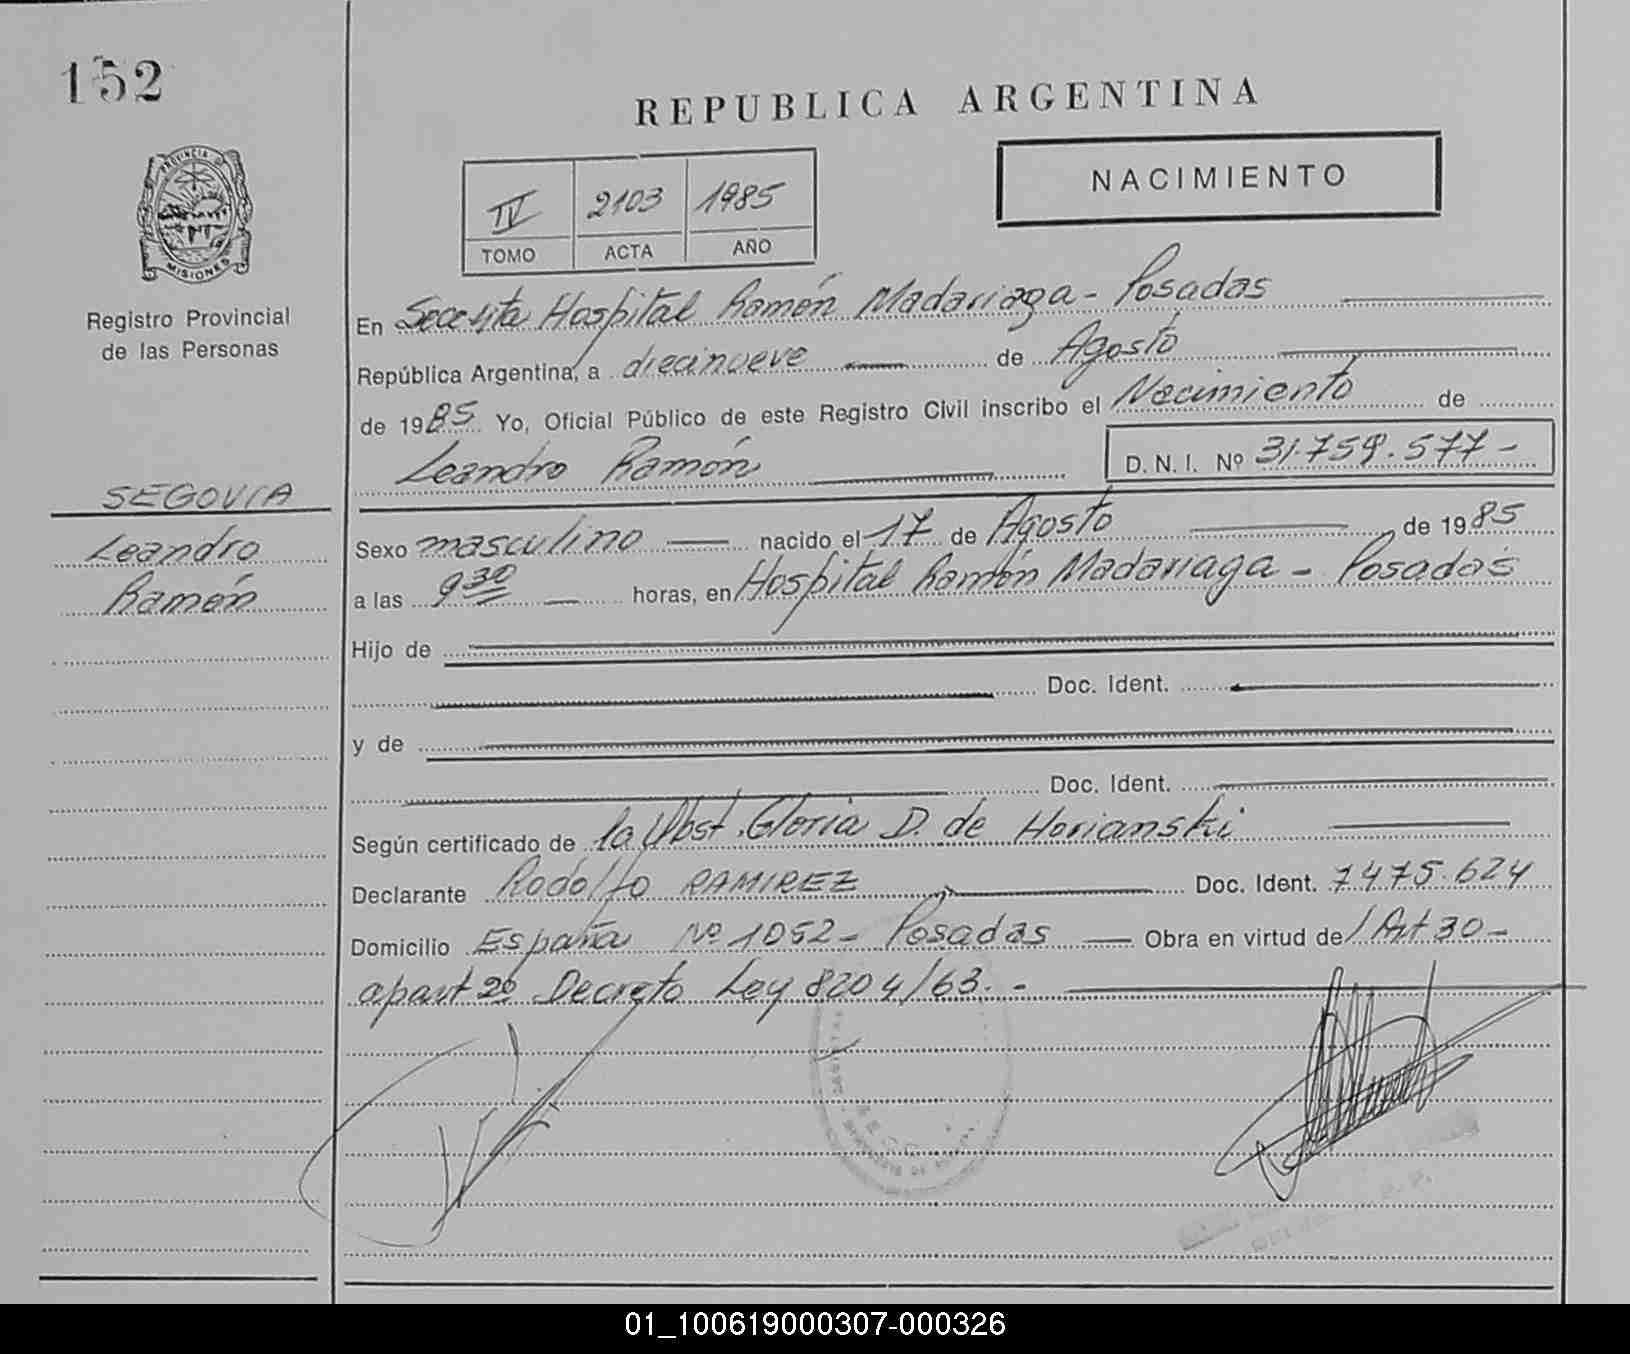 152
REPUBLICA ARGENTINA
NACIMIENTO
IV 2103 1985
TOMO ACTA AÑO
PROVINCIA DE
MISIONES
Registro Provincial
de las Personas
En Hospital Ramón Madariaga - Posadas
República Argentina, a diecinueve de Agosto
de 1985 Yo, Oficial Público de este Registro Civil inscribo el Nacimiento de
Leandro Ramón D. N. I. Nº 31.759.577-
SEGOVIA
Leandro
Ramón
Sexo masculino nacido el 17 de Agosto de 1985
a las 9 30 horas, en Hospital Ramón Madariaga - Posadas
Hijo de
Doc. Ident.
y de
Doc. Ident.
Según certificado de la Obst. Gloria D. de Horianski
Declarante Rodolfo RAMIREZ Doc. Ident. 7475.624
Domicilio España Nº 1052- Posadas Obra en virtud de / Art 30-
apart 2º Decreto Ley 8204/63.-
01_100619000307-000326